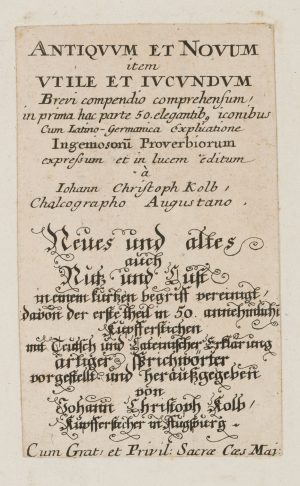 ANTIQVVM ET NOVUM
item
VTILE ET IVCVNDVM
Brevi compendio comprehensum,
in prima hac parte 50. elegantibq iconibus
Cum Latino-Germanica Explicatione
Ingemosorū Proverbiorum
expressum et in lucem editum
à
Iohann Christoph Kolb,
Chalcographo Augustano.
Neues und altes
auch
Nutz und Lust
in einem kurtzen begriff vereinigt,
davon der erste theil in 50. annehmlichē
Kupfferstichen
mit Teutsch und Lateinischer Erklärung
artiger Sprichwörter
vorgestellt und heraußgegeben
von
Johann Christoph Kolb,
Kupfferstecher in Augspurg.
Cum Grat: et Privil: Sacræ Cæs Mai: